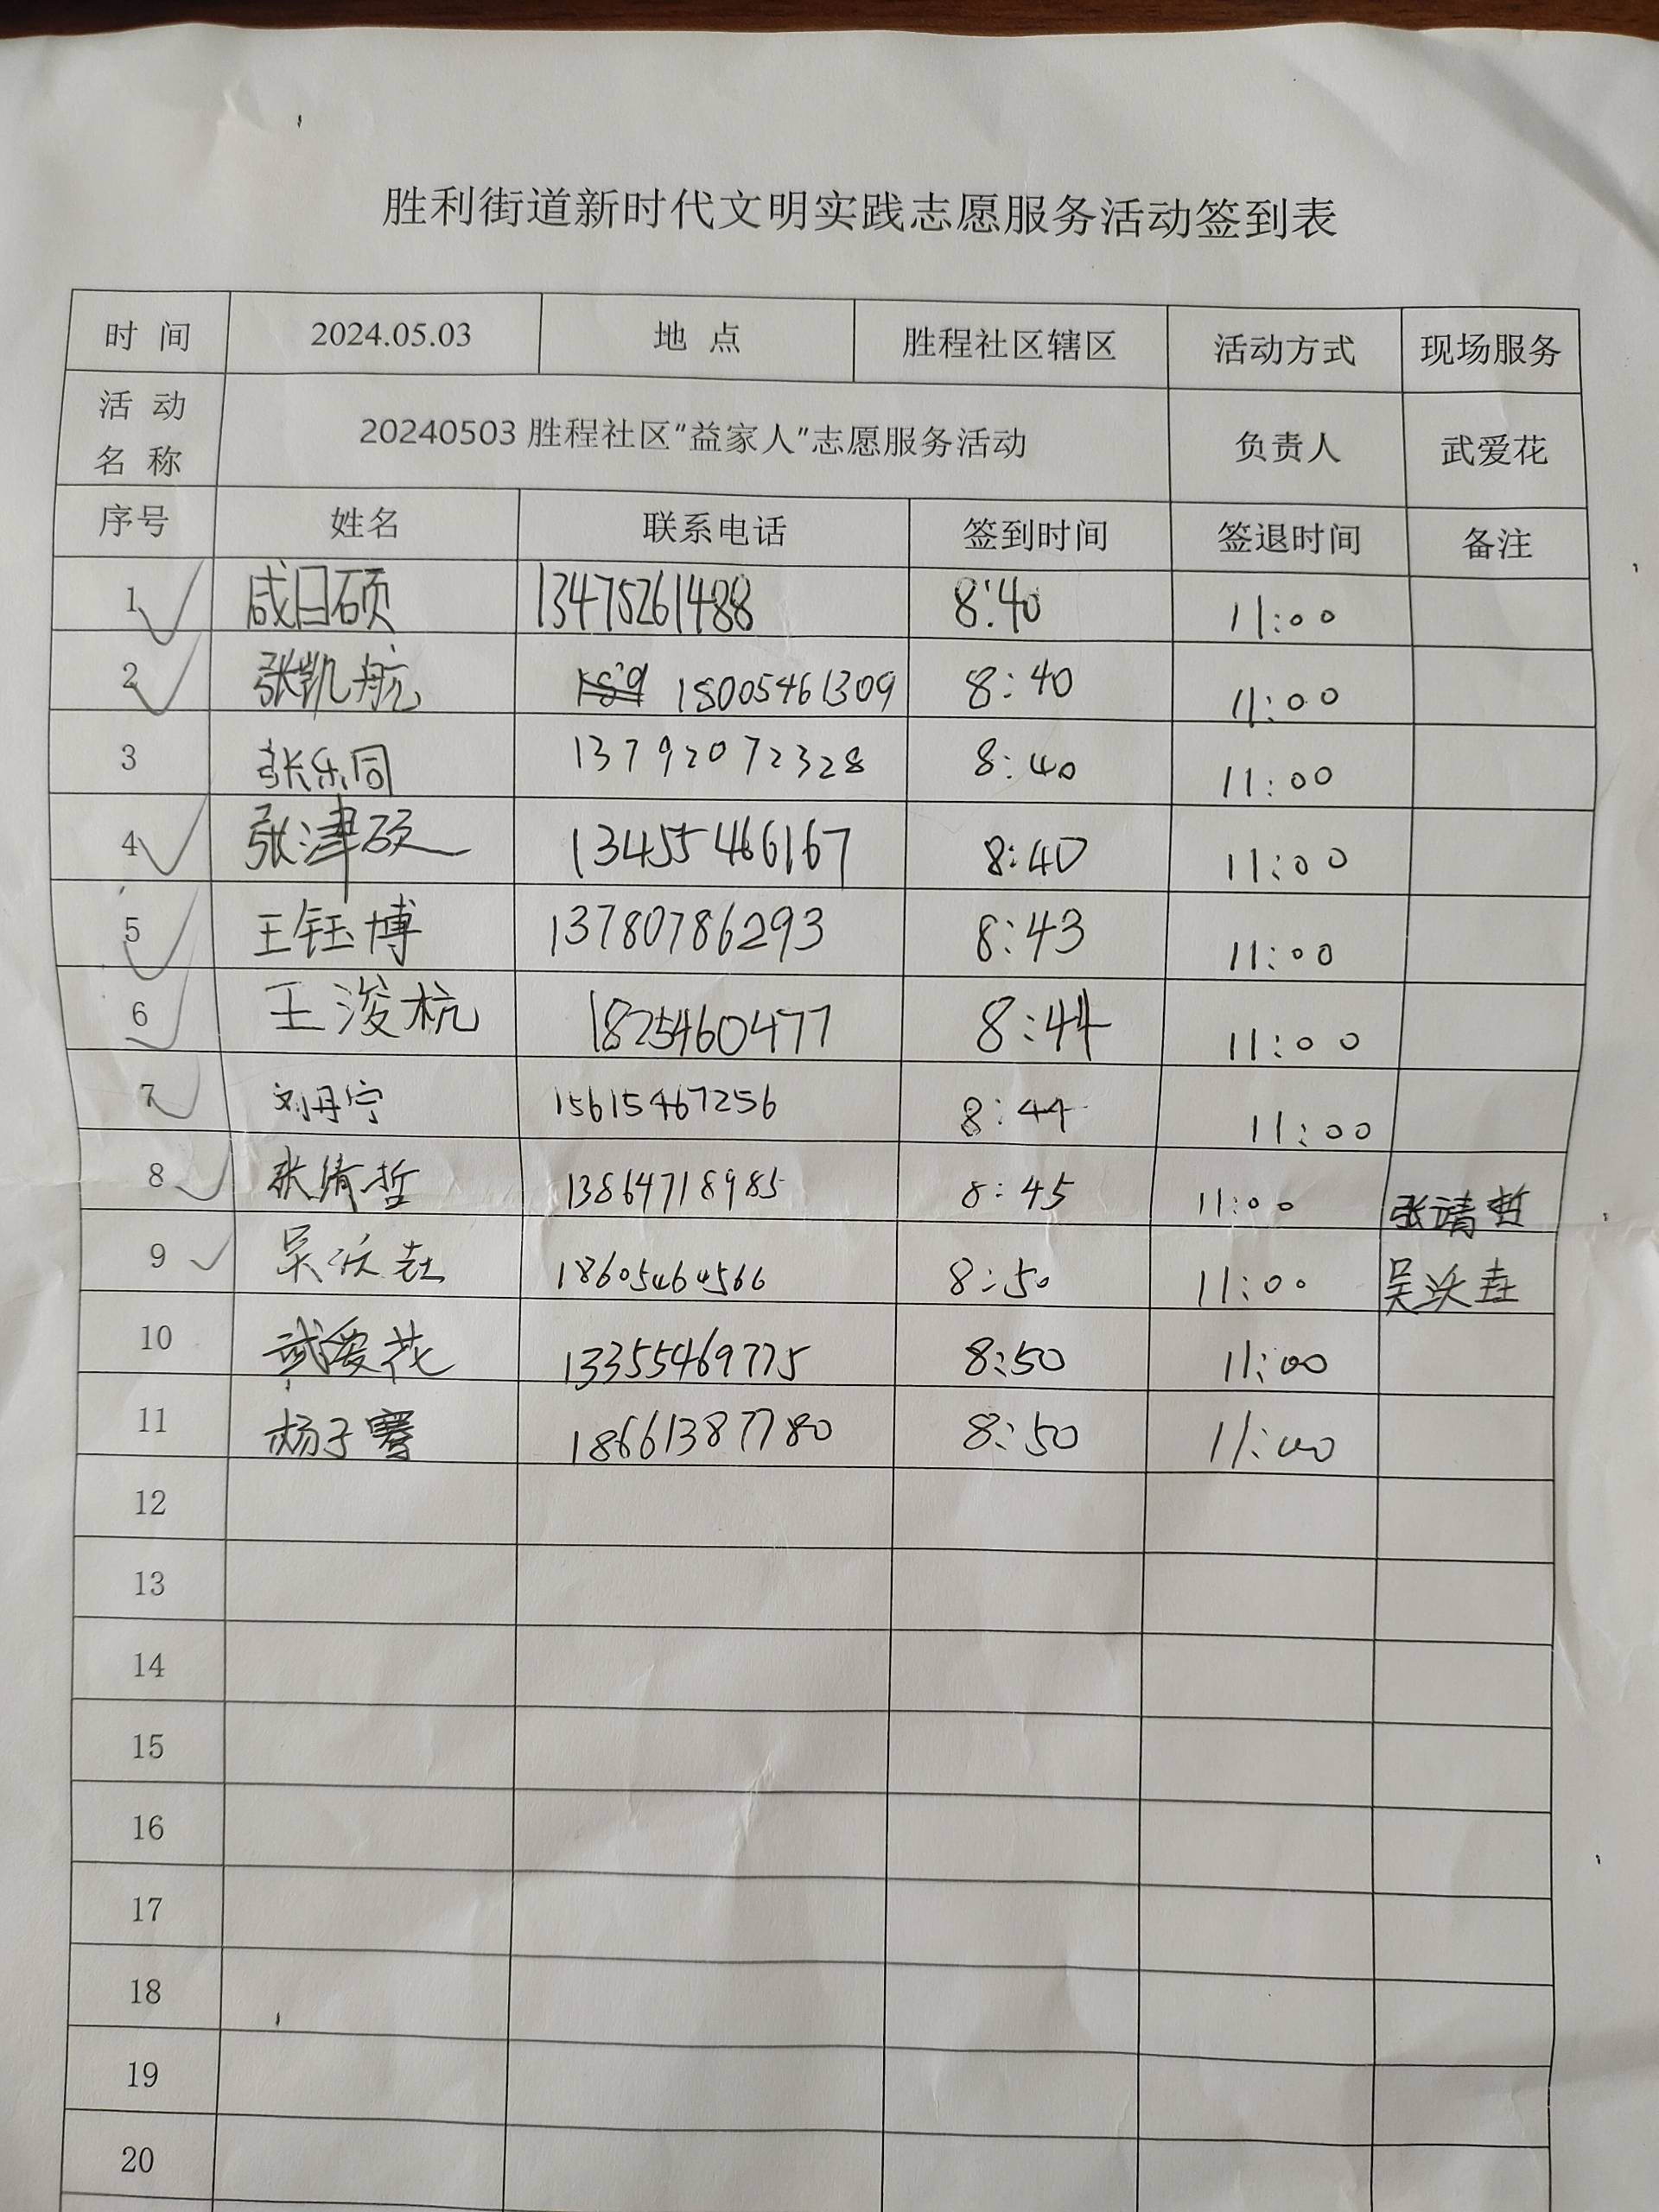 胜利街道新时代文明实践志愿服务活动签到表
时 间 2024.05.03 地 点 胜程社区辖区 活动方式 现场服务
活 动 名 称 20240503胜程社区"益家人"志愿服务活动 负责人 武爱花
序号 姓名 联系电话 签到时间 签退时间 备注
1 咸日硕 13475261488 8:40 11:00
2 张凯航 18005461309 8:40 11:00
3 张乐同 13792072328 8:40 11:00
4 张津硕 13455466167 8:40 11:00
5 王钰博 13780786293 8:43 11:00
6 王浚杭 1825460477 8:44 11:00
7 刘丹宁 15615467256 8:44 11:00
8 张靖哲 13864718985 8:45 11:00 张靖哲
9 吴 18605464566 8:50 11:00 吴
10 武爱花 13355469775 8:50 11:00
11 杨子骞 18661387780 8:50 11:00
12
13
14
15
16
17
18
19
20